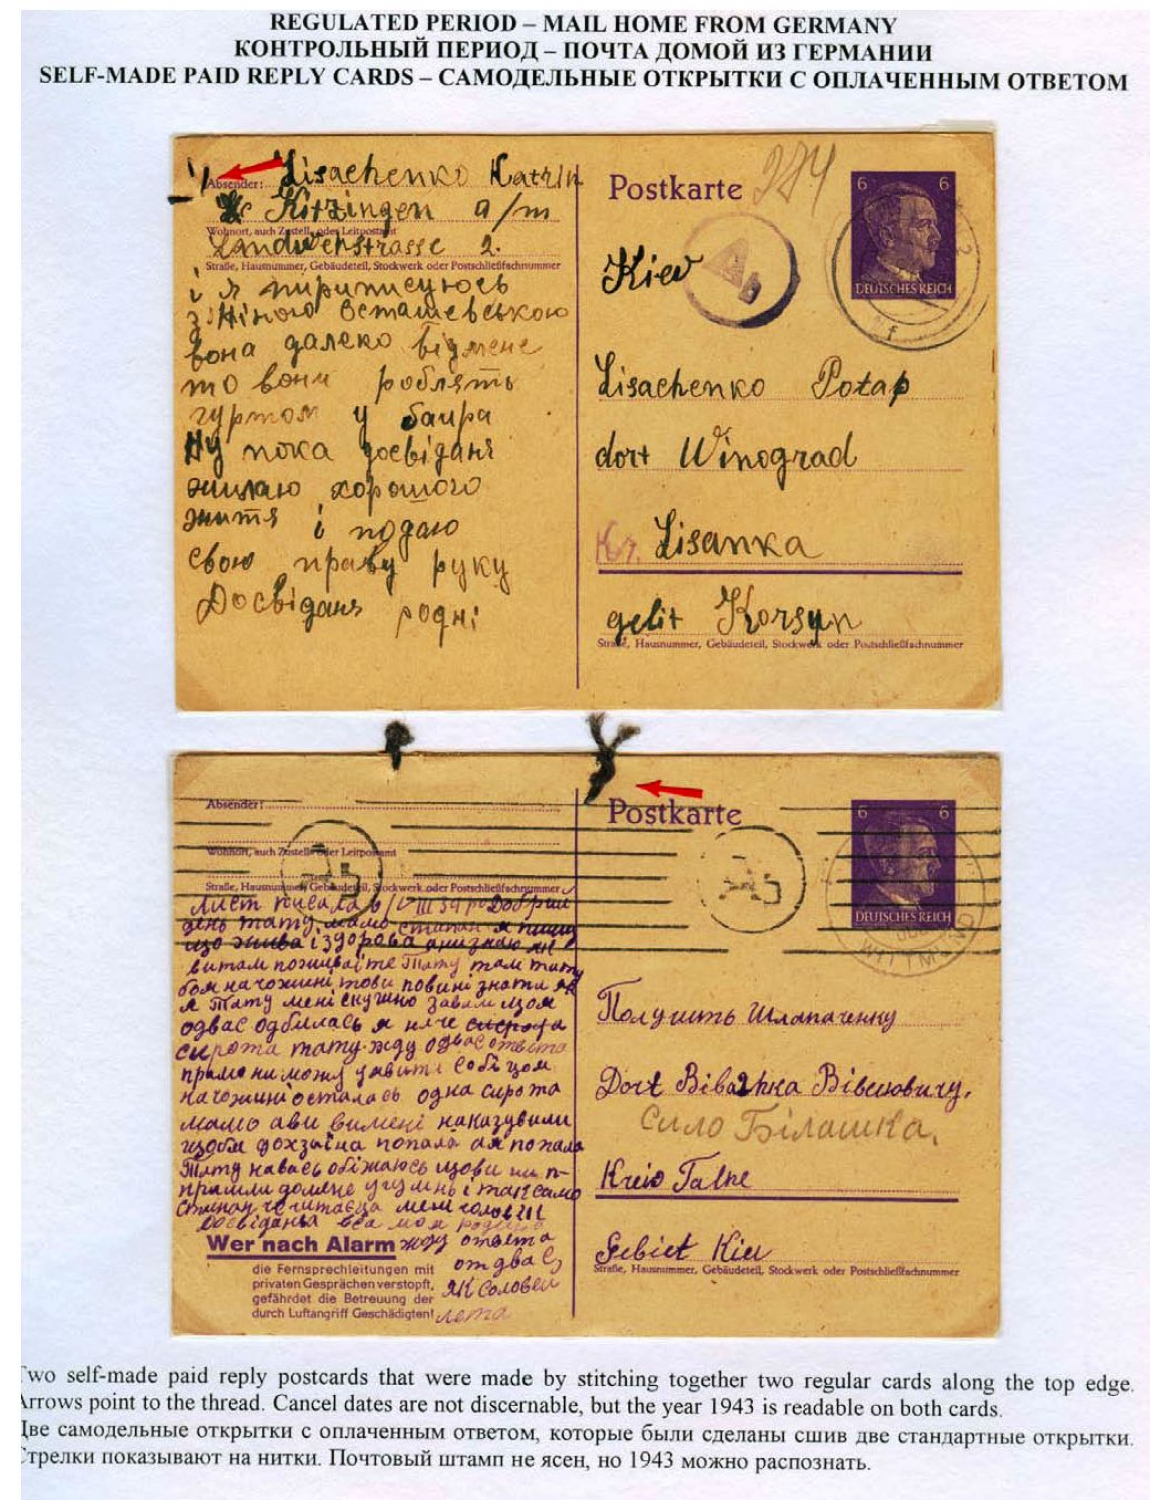 REGULATED PERIOD – MAIL HOME FROM GERMANY
КОНТРОЛЬНЫЙ ПЕРИОД – ПОЧТА ДОМОЙ ИЗ ГЕРМАНИИ
SELF-MADE PAID REPLY CARDS – САМОДЕЛЬНЫЕ ОТКРЫТКИ С ОПЛАЧЕННЫМ ОТВЕТОМ
Absender: Lisachenko Katrin
Kitzingen a/m
Wohnort, auch Zustell- oder Leitpostamt
Landwehstrasse 2.
Straße, Hausnummer, Gebäudeteil, Stockwerk oder Postschließfachnummer
і я пириписуюсь
з Ніною Осташевською
вона далеко відмене
то вони роблять
гуртом у баура
Ну пока досвіданя
жилаю хорошого
життя і подаю
свою праву руку
Досвіданя родні
Postkarte 274
6 6
DEUTSCHES REICH
Ab
Kiev
Lisachenko Potap
dort Winograd
Kr. Lisanka
gebit Korsyn
Straße, Hausnummer, Gebäudeteil, Stockwerk oder Postschließfachnummer
Absender:
Wohnort, auch Zustell- oder Leitpostamt
Straße, Hausnummer, Gebäudeteil, Stockwerk oder Postschließfachnummer
Лист писала
день тату, мамо я пишу
що жива і здорова
витам поживаєте Тату
повині знати як
я Тату мені скушно
одвас одбилась я наче
сирота тату жду одвас отвєта
прамо ни можу
осталась одна сирота
мамо
попала
Тату навась обіжаюсь
і так само
Досвіданья вся моя родина
Wer nach Alarm жду ответа
die Fernsprechleitungen mit от двас
privaten Gesprächen verstopft, як Соловей
gefährdet die Betreuung der
durch Luftangriff Geschädigten! лета
Postkarte
6 6
DEUTSCHES REICH
Ab
Ab
WITTMUND
Получить Шлапаченку
Dort
Село Білашка,
Kreis Talne
Gebiet Kiew
Straße, Hausnummer, Gebäudeteil, Stockwerk oder Postschließfachnummer
wo self-made paid reply postcards that were made by stitching together two regular cards along the top edge.
rrows point to the thread. Cancel dates are not discernable, but the year 1943 is readable on both cards.
ве самодельные открытки с оплаченным ответом, которые были сделаны сшив две стандартные открытки.
трелки показывают на нитки. Почтовый штамп не ясен, но 1943 можно распознать.